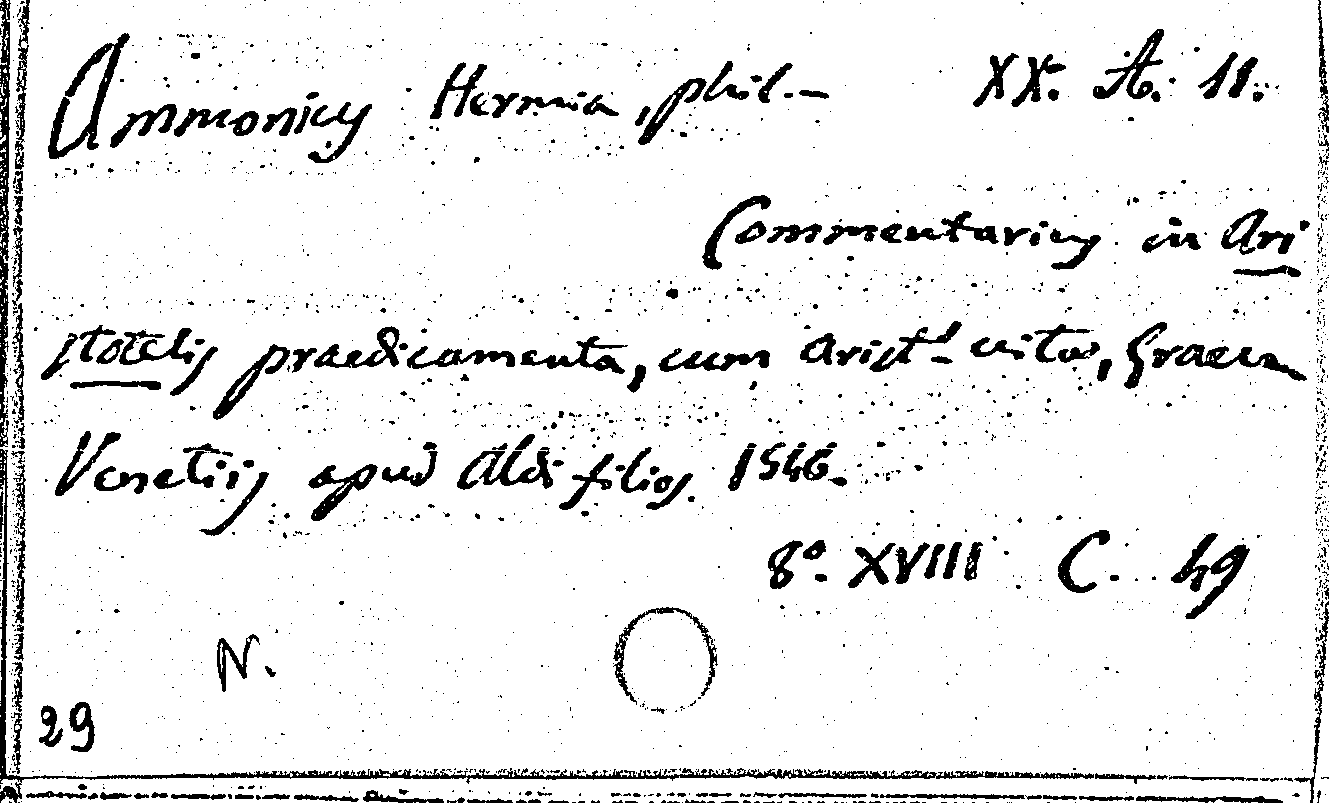 Ammonius Hermia, phil.— XX. A. 11.
Commentarius in Ari
stotelis praedicamenta, cum Arist.s vita, Graece
Venetiis apud Aldi filios 1546.
8°. XVIII C. 49
N.
29